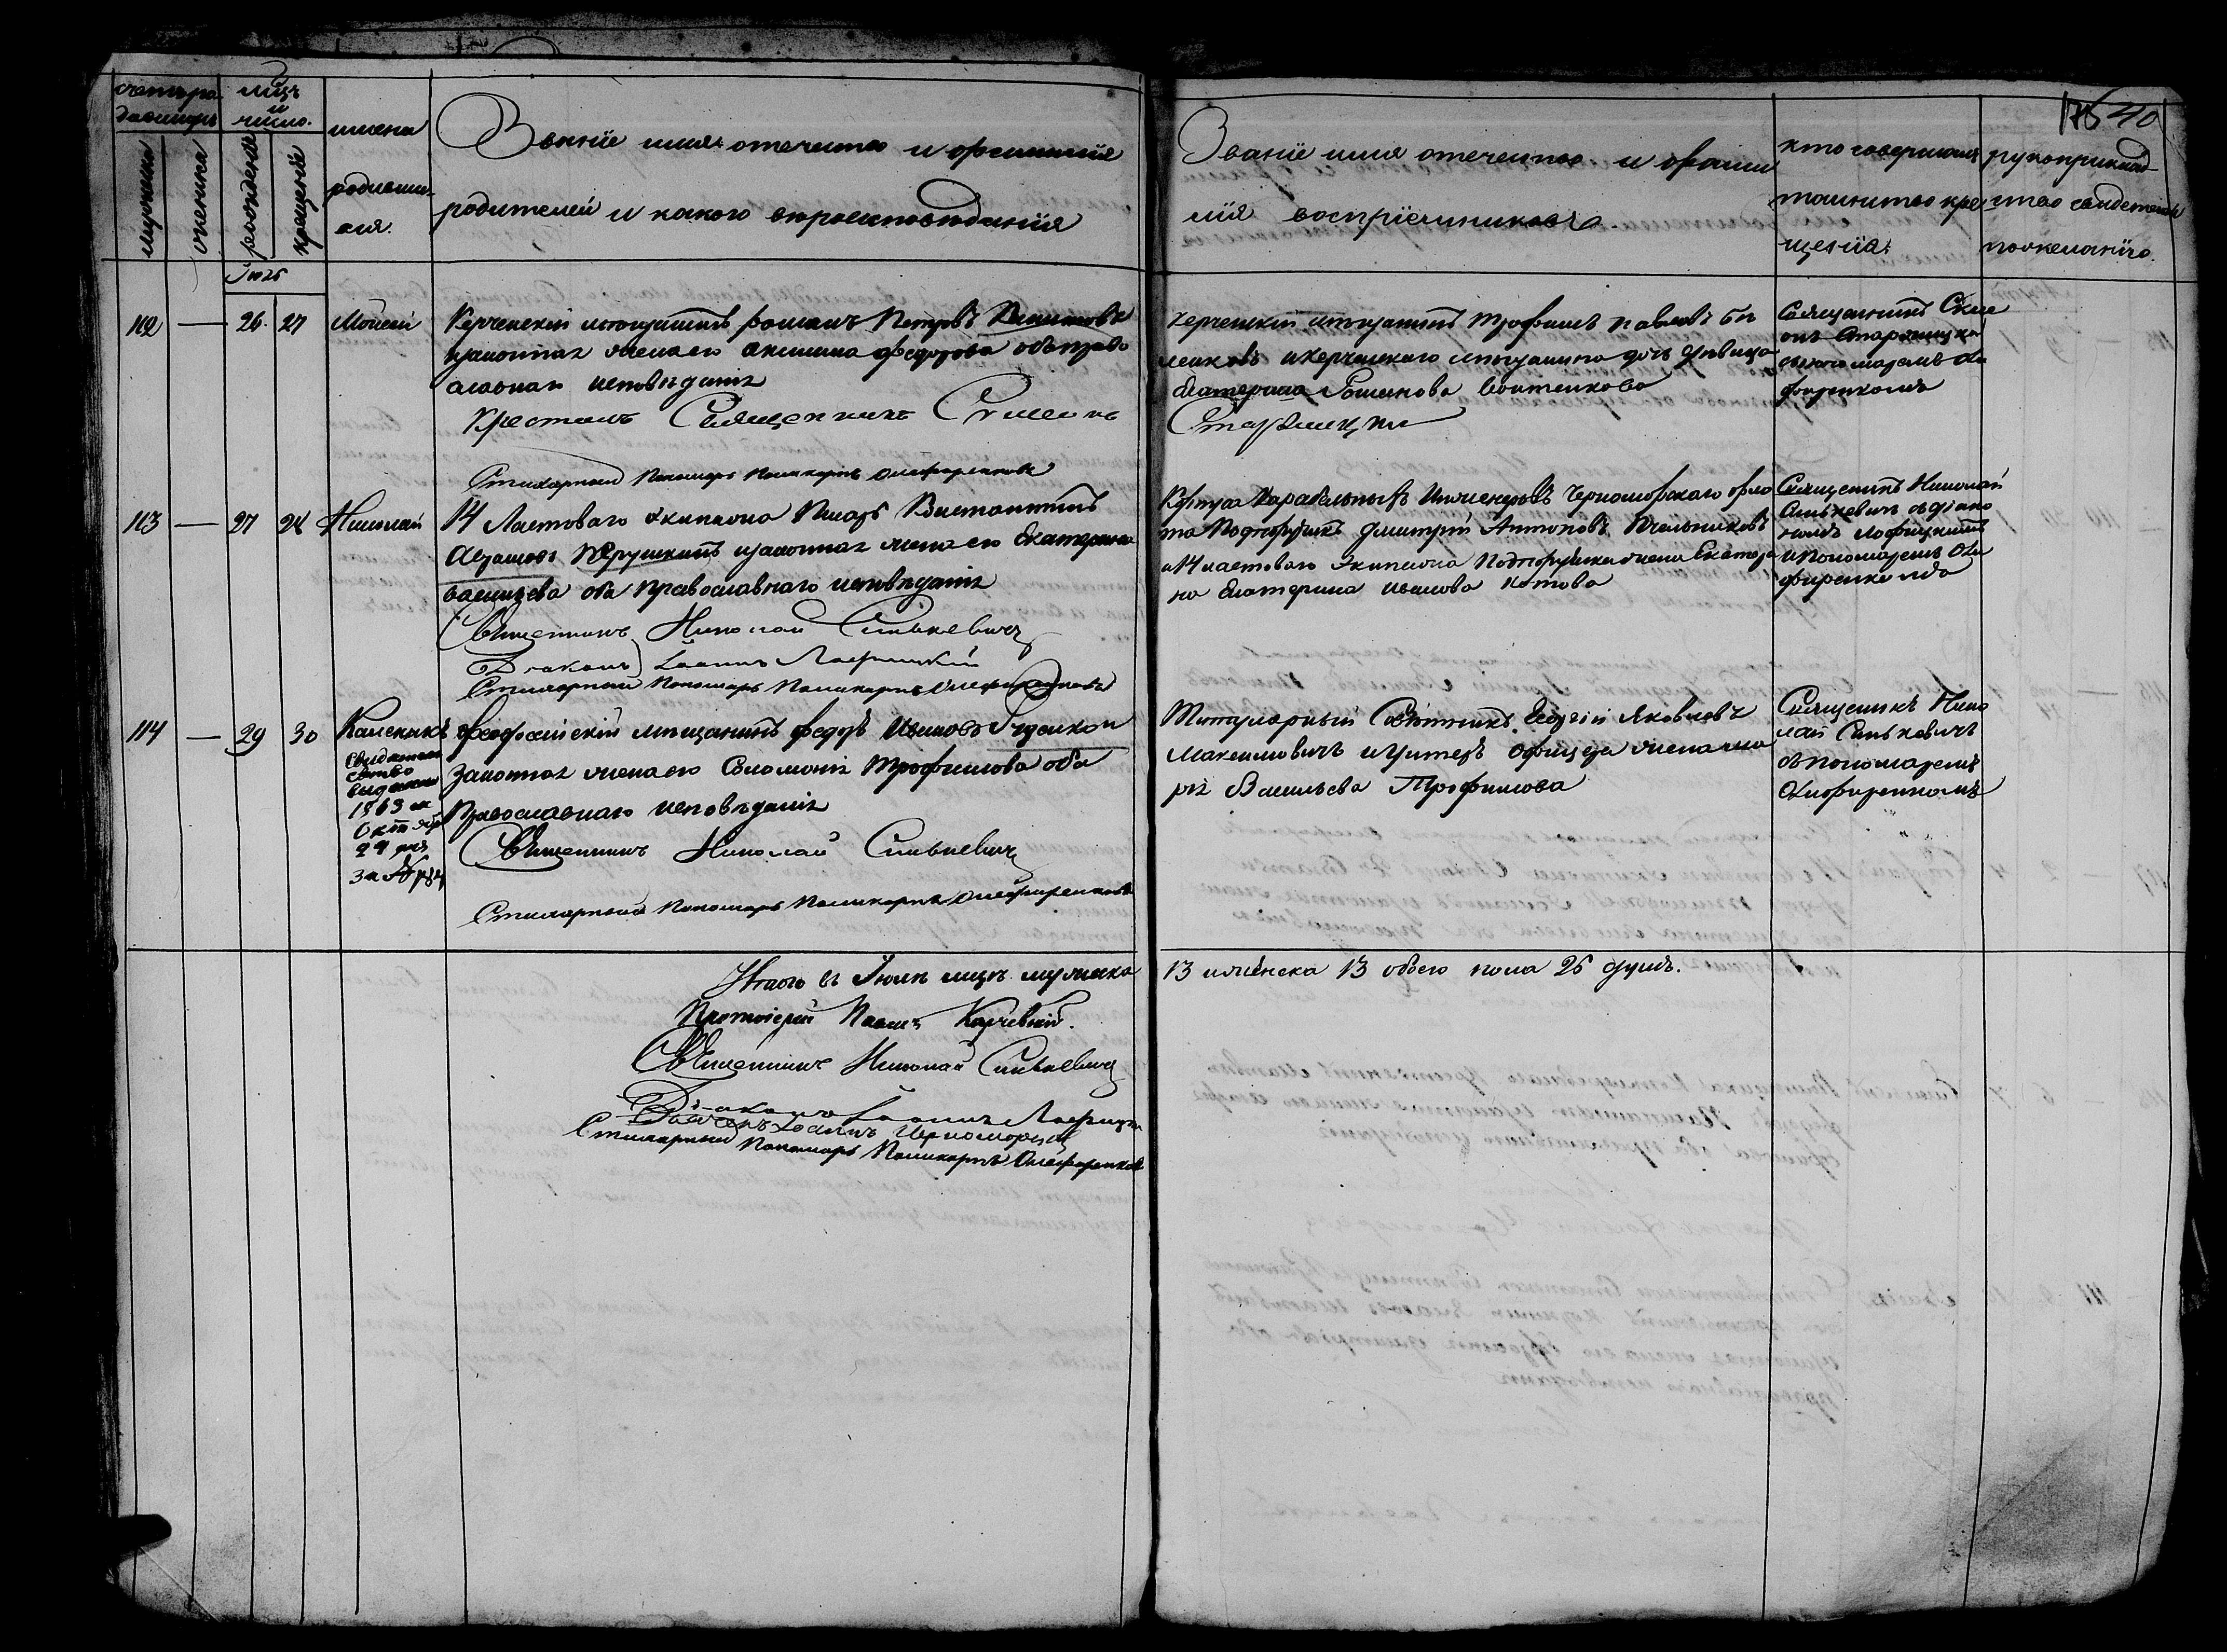 счетъ ро
дившихъ
мѣцъ
и
число.
мужеска
женска
рожденія
крещенія
имена
родивши-
хся.
Званіе имя отечество и фамилія
родителей и какого вѣроисповѣданія
Званіе имя отечество и фами
лія воспріемниковъ.
кто совершалъ
таинство кре
щенія.
рукоприклад
ство свидетелей
по желанію.
40
Іюль
112 — 26 27 Моисей
Керченскій мѣщанинъ Романъ Петровъ
законная жена его Аксинія Федорова оба право
славнаго исповѣданія
Крестилъ Священникъ Симеонъ
Старжицкій
Стихарный Пономарь Поликарпъ Олефиренковъ
керченскій мѣщанинъ Трофимъ Павловъ
и керченскаго мѣщанина дочь дѣвица
Екатерина Романова
Священникъ Симе
онъ Старжицкій
съ пономаремъ Оле
фиренкомъ
113 — 27 28 Николай
14 Ластоваго Экипажа Писарь Константинъ
Абрамовъ законная жена его Екатерина
Васильева оба Православнаго исповѣданія
Священникъ Николай Синькевичъ
Діаконъ Іоаннъ Лофицкій
Стихарный Пономарь Поликарпъ Олефиренковъ
Корпуса Карабельныхъ Инженеровъ Черноморскаго фло
та Подпорутчикъ Дмитрій Антоновъ Мельниковъ
и 14 ластоваго Экипажа Подпорутчика жена Екатери
на Екатерина Иванова Котова
Священникъ Николай
Синькевичъ съ діако
номъ Лофицкимъ
и Пономаремъ Оле
фиренковымъ
114 — 29 30 Калиникъ
Свидетель
ство
выдано
1863 г
Октября
24 дня
за №
Феодосійскій мѣщанинъ Федоръ Ивановъ
Законная жена его Соломонія Трофимова оба
Православнаго исповѣданія
Священникъ Николай Синькевичъ
Стихарный Пономарь Поликарпъ Олефиренковъ
Титулярный Совѣтникъ Георгій Яковлевъ
Максимовичъ и Унтеръ Офицера жена Ма
рія Васильева Трофимова
Священникъ Нико
лай Синькевичъ
съ пономаремъ
Олефиренкомъ
Итого въ Іюлѣ мѣцѣ мужеска
13 и женска 13 обоего пола 26 душъ.
Протоіерей Павелъ Карчевскій.
Священникъ Николай Синькевичъ
Діаконъ Іоаннъ Лофицкій
Дьячекъ Іоаннъ Черноморцевъ
Стихарный Пономарь Поликарпъ Олефиренковъ